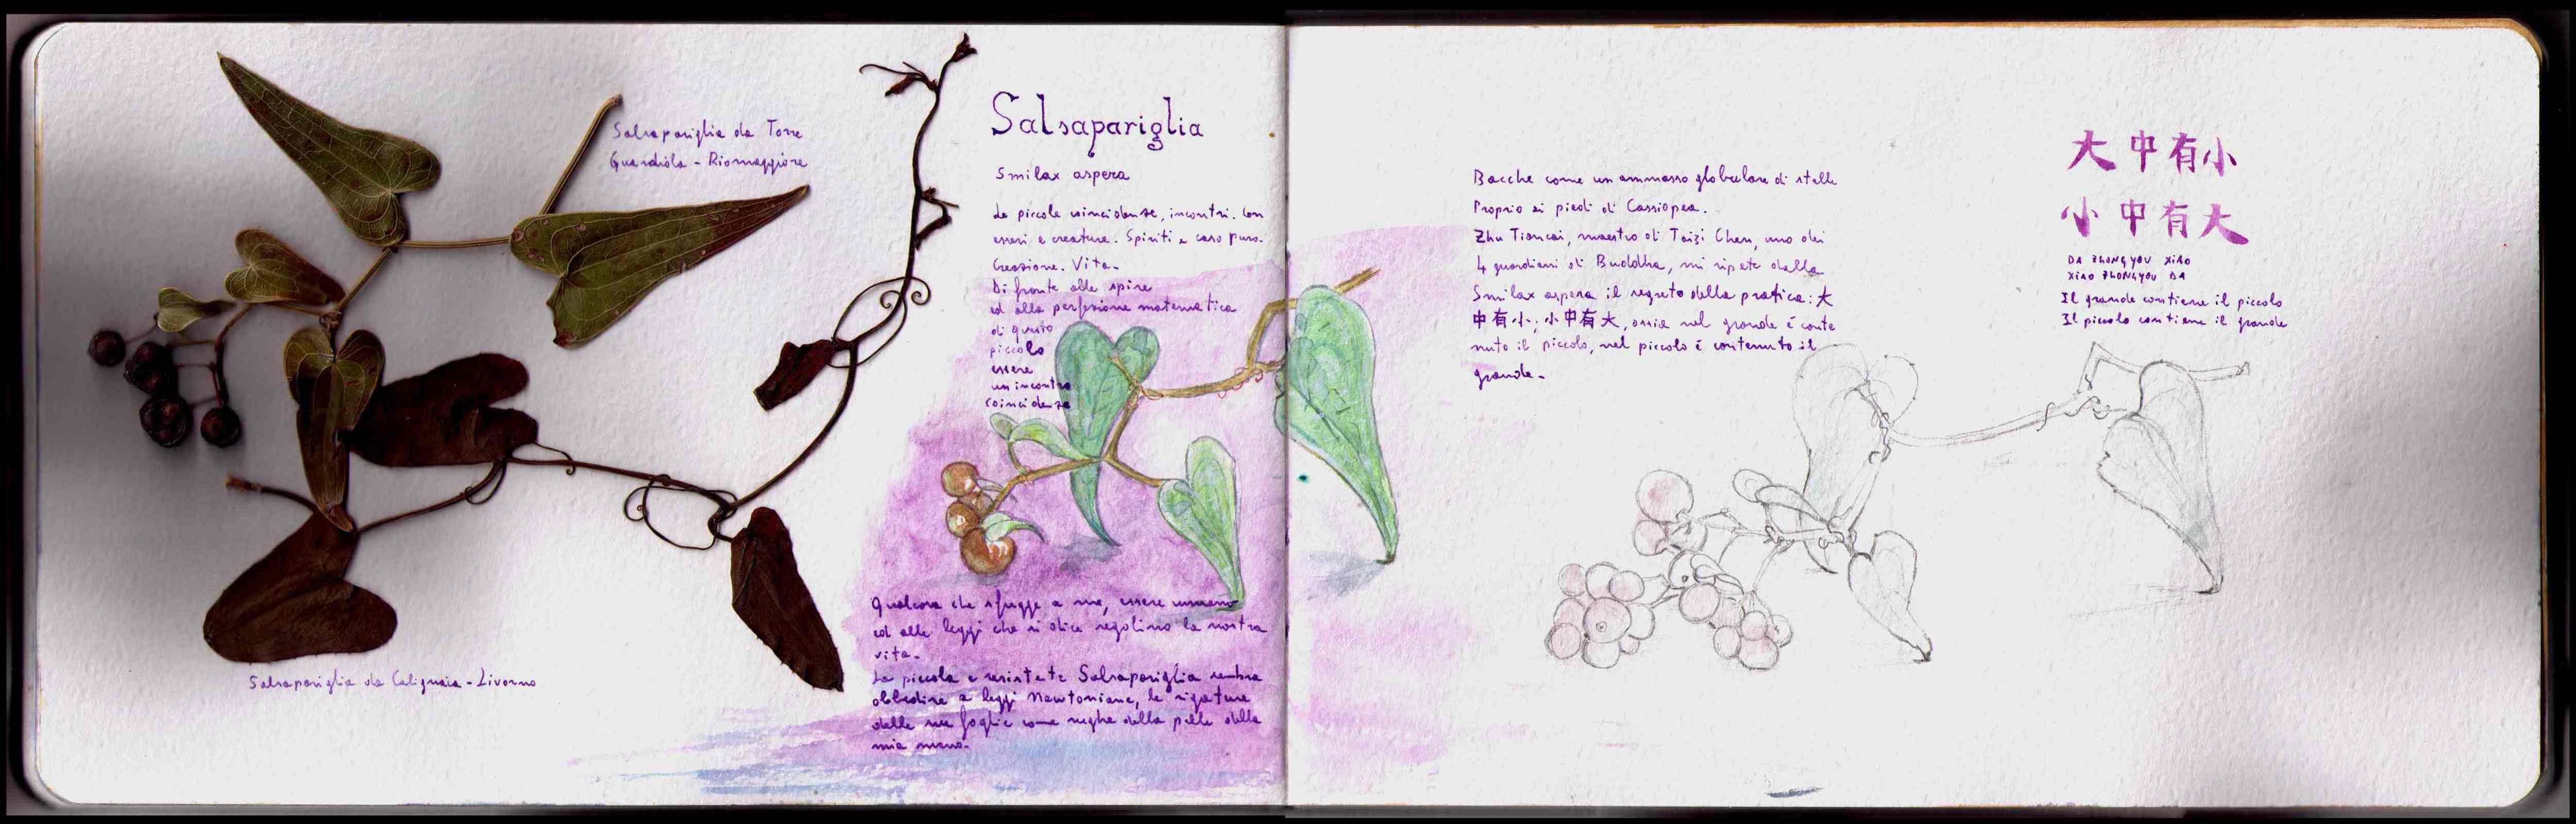 Salsapariglia da Torre
Guardiola - Riomaggiore
Salsapariglia da Calignaia - Livorno
Salsapariglia
Smilax aspera
Le piccole coincidenze, incontri. Con
esseri e creature. Spiriti e caso puro.
Creazione. Vita.
Di fronte alle spire
ed alla perfezione matematica
di questo
piccolo
essere
un incontro
coincidenza
Qualcosa che sfugge a me, essere umano
ed alle leggi che si dice regolino la nostra
vita.
La piccola e resistente Salsapariglia sembra
obbedire a leggi Newtoniane, le rigature
delle sue foglie come rughe della pelle della
mia mano.
Bacche come un ammasso globulare di stelle
Proprio ai piedi di Cassiopea.
Zhu Tiancai, maestro di Taiji Chen, uno dei
4 guardiani di Buddha, mi ripete dalla
Smilax aspera il segreto della pratica: 大
中有小; 小中有大, ossia nel grande è conte
nuto il piccolo, nel piccolo è contenuto il
grande.
大中有小
小中有大
DA ZHONG YOU XIAO
XIAO ZHONG YOU DA
Il grande contiene il piccolo
Il piccolo contiene il grande